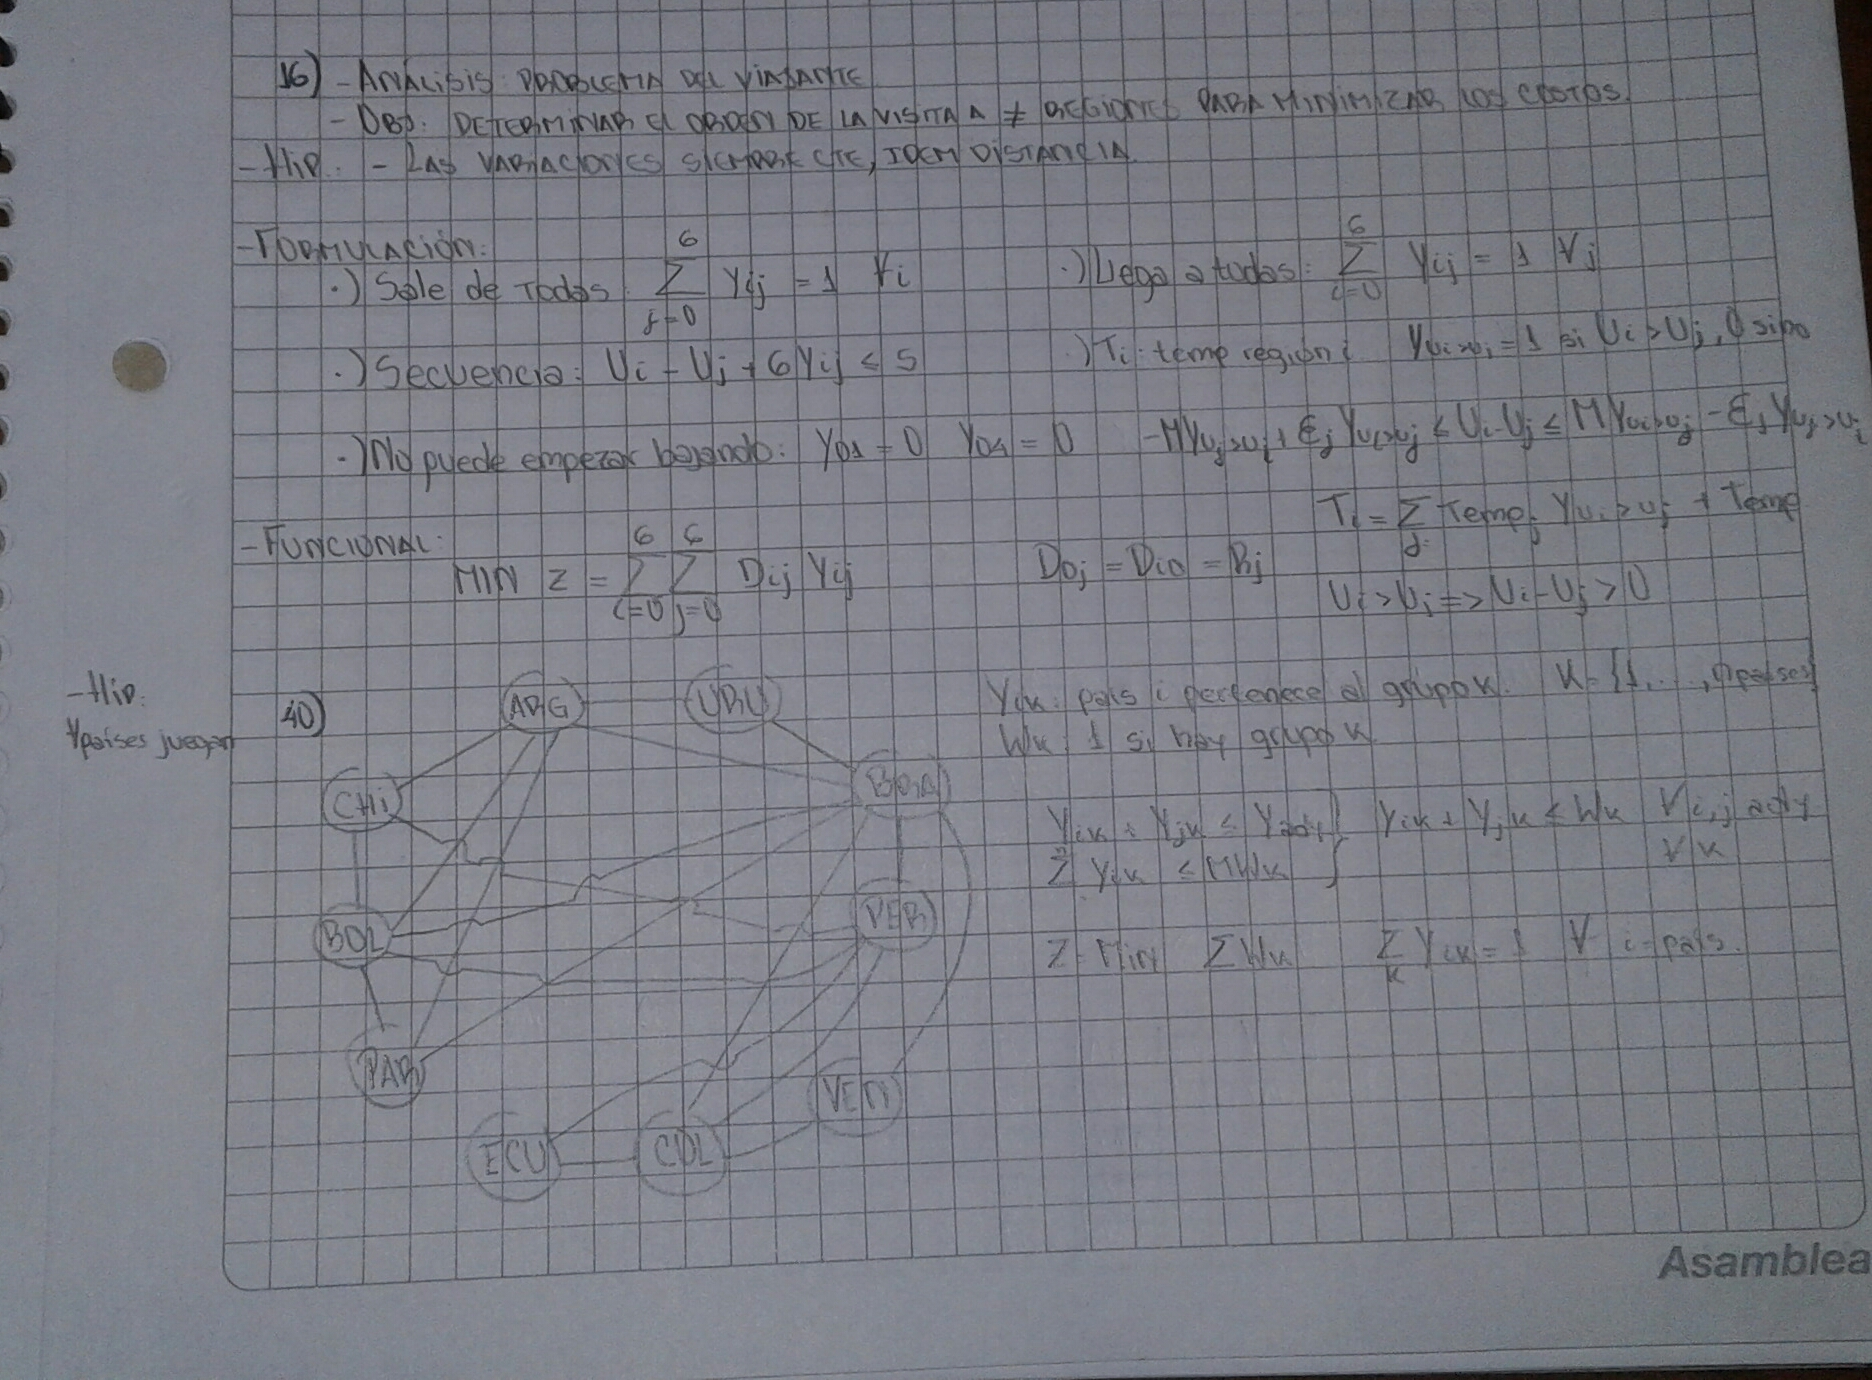 16) - ANÁLISIS: PROBLEMA DEL VIAJANTE
- OBJ: DETERMINAR EL ORDEN DE LA VISITA A ≠ REGIONES PARA MINIMIZAR LOS COSTOS.
- Hip: - LAS VARIACIONES SIEMPRE CTE, IDEM DISTANCIA
- FORMULACIÓN:
·) Sale de todos: 6 Σ j=0 Yij = 1 ∀i
·) Llega a todos: 6 Σ i=0 Yij = 1 ∀j
·) Secuencia: Ui - Uj + 6 Yij ≤ 5
·) Ti: temp región i Yui>uj = 1 si Ui > Uj, 0 sino
·) No puede empezar bajando: Y01 = 0 Y04 = 0
-MYuj>ui + Ej Yui>uj ≤ Ui - Uj ≤ MYui>uj - Ej Yuj>ui
Ti = Σ j Tempj Yui>uj + Temp
- FUNCIONAL:
MIN Z = 6 Σ i=0 6 Σ j=0 Dij Yij
D0j = Di0 = Rj
Ui > Uj => Ui - Uj > 0
- Hip:
∀países juegan
40)
ARG URU
Yik: país i pertenece al grupo k. K = {1, ..., países}
Wk: 1 si hay grupo k
CHI BRA
Yik + Yjk ≤ } Yik + Yjk ≤ Wk ∀ i,j ady
Σ Yik ≤ MWk } ∀ k
BOL PER
Z Min Σ Wk Σ k Yik = 1 ∀ i = país.
PAR
VEN
ECU COL
Asamblea